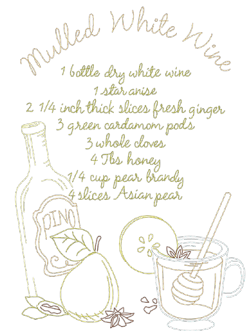 Mulled White Wine
1 bottle dry white wine
1 star anise
2 1/4 inch thick slices fresh ginger
3 green cardamom pods
3 whole cloves
4 Tbs honey
1/4 cup pear brandy
4 slices Asian pear
PINO